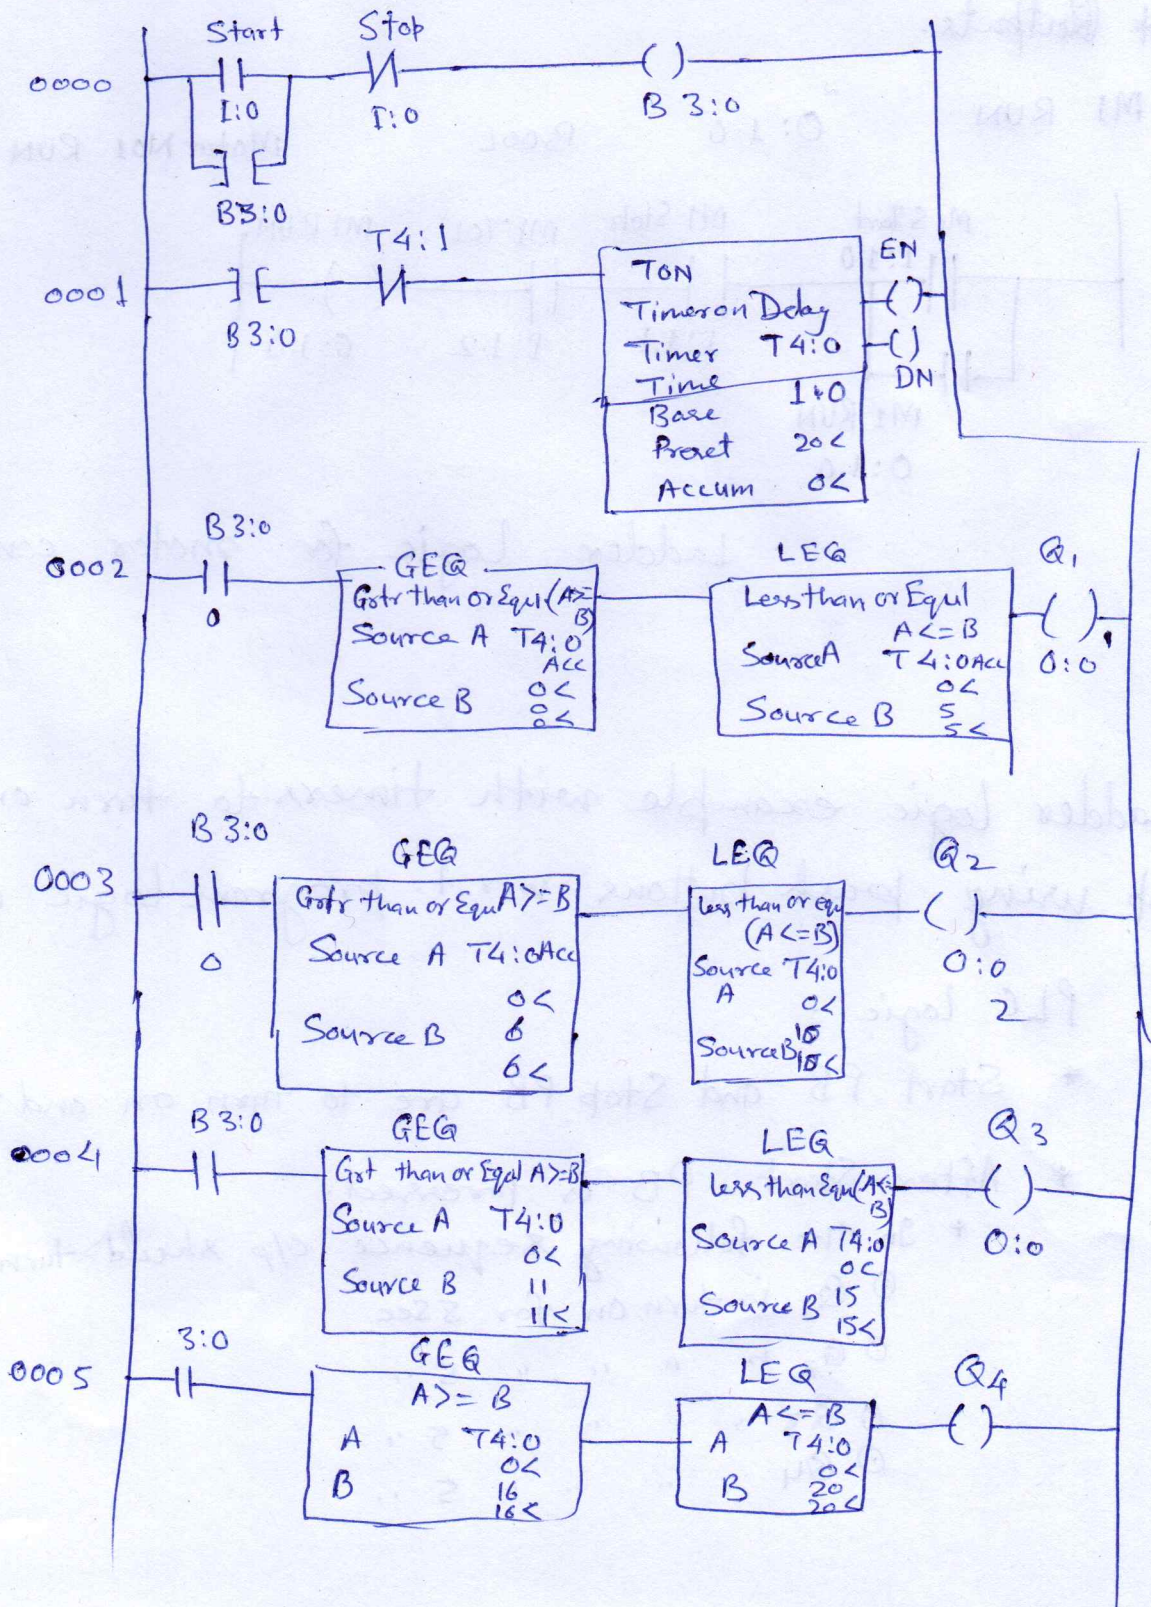 Start Stop
0000
I:0 I:0 B 3:0
B3:0
T4:1
0001
B3:0
TON EN
Timer on Delay
Timer T4:0
DN
Time 1.0
Base
Preset 20<
Accum 0<
B 3:0
0002
0
GEQ
Grtr than or Equl (A>=
B)
Source A T4:0
Acc
0<
Source B 0
0<
LEQ
Less than or Equl
A<=B
Source A T4:0Acc
0<
Source B 5
5<
Q1
0:0
B 3:0
0003
0
GEQ
Grtr than or Equ A>=B
Source A T4:0Acc
0<
Source B 6
6<
LEQ
Less than or equ
(A<=B)
Source T4:0
A 0<
10
Source B 10<
Q2
0:0
2
B 3:0
0004
GEQ
Grt than or Eqal A>=B
Source A T4:0
0<
Source B 11
11<
LEQ
Less than Equ(A<=
B)
Source A T4:0
0<
Source B 15
15<
Q3
0:0
3:0
0005
GEQ
A>= B
A T4:0
0<
B 16
16<
LEQ
A<=B
A T4:0
0<
B 20
20<
Q4